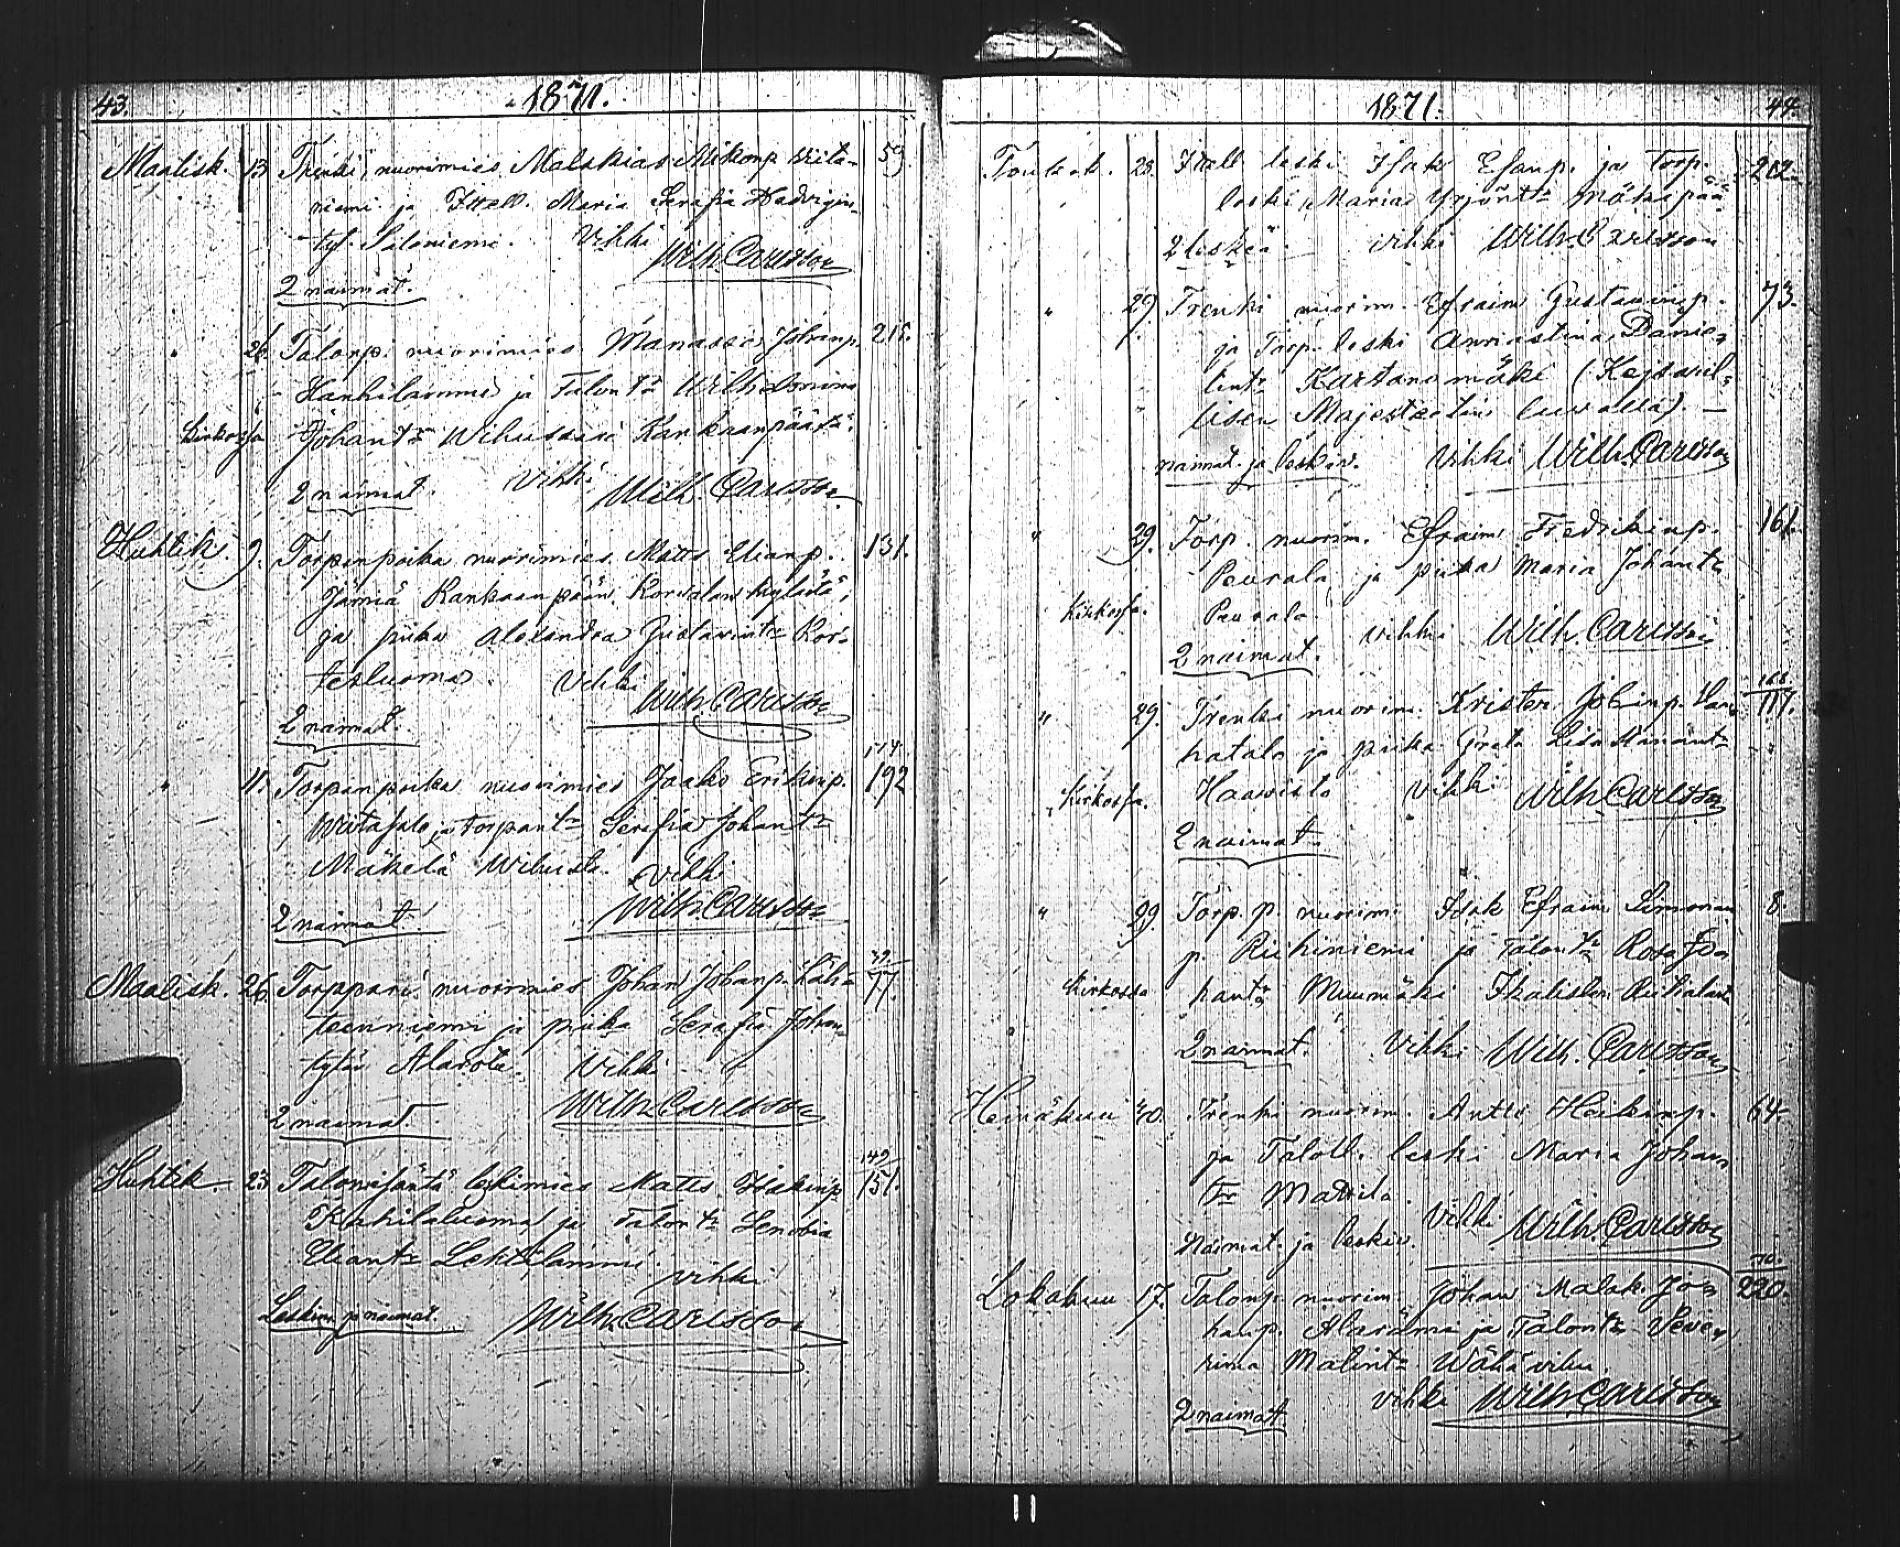 43. 1871.
Maalisk. 13 Trenki nuorimies Malakias Mikonp. Wiita- 59.
niemi ja Itsell. Maria Serafia Hedvigin
tyt. Saloniemi. Vihki
Wilh. Carlsson
2 naimat.
" 26. Talonp. nuorimies Manasse Johanp. 215.
Hanhilammi ja Talont:r Wilhelmina
Kirkossa Johant:r Wihussaari Kankaanpäästä.
Vihki
2 naimat. Wilh. Carlsson
Huhtik. 9. Torpanpoika nuorimies Matts Elianp. 131.
Jämiä Kankaanpään Korvaluan kylästä,
ja piika Alexandra Gustavint:r Kor-
tesluoma. Vihki
Wilh. Carlsson
2 naimat.
" 11. Torpanpoika nuorimies Jaako Erikinp. 192
Wiitasalo ja torpant:r Serafia Johant:r
Mäkelä Wihusta. Vihki
Wilh. Carlsson
2 naimat.
Maalisk. 26. Torppari nuorimies Johan Johanp. Läh- 77.
teenniemi ja piika Serafia Johan-
tytär Alarota. Vihki
Wilh. Carlsson
2 naimat.
149
Huhtik. 23 Talonisäntä leskimies Matts Iisakinp. 151.
Kuhilaluoma ja Talont:r Senobia
Eliant:r Lehtilammi.
Vihki
Leskim. ja naimat. Wilh. Carlsson
1871. 44.
Toukok. 28. Itsell. leski Isak Efanp. ja Torp. 212.
leski Maria Yrjönt:r Mätäspää
2 leskeä. Vihki Wilh. Carlsson
" 29. Trenki nuorim. Efraim Gustavinp. 73.
ja Torp. leski Annastina Danie-
lint:r Kartanomäki (Kejsaril-
lisen Majesteetin luvalla). —
naimat. ja leskiv. Vihki Wilh. Carlsson
" 29. Torp. nuorim. Efraim Fredrikinp. 161.
Peurala ja piika Maria Johant:r
Kirkossa. Peurala.
Vihki Wilh. Carlsson
2 naimat.
168.
" 29. Trenki nuorim. Krister Johanp. Van- 117.
hatalo ja piika Greta Lisa
Kirkossa. Haavisto Vihki Wilh. Carlsson
2 naimat.
" 29. Torp. p. nuorim. Isak Efraim Simonan 8.
p. Riihiniemi ja Talont:r Rosa Jo-
Kirkossa hant:r Muumäki Ikalisten Riihalasta
2 naimat. Vihki Wilh. Carlsson
Heinäkuu 30. Trenki nuorim. Antti Heikinp. 64.
ja Taloll. leski Maria Johan
t:r Mattila.
Vihki Wilh. Carlsson
Naimat. ja leskiv.
70.
Lokakuu 17. Talonp. nuorim. Johan Malak. Jo- 220.
hanp. Alarämi ja Talont:r Seve-
rina Malint:r Wähävihu.
Vihki Wilh. Carlsson
2 naimat.